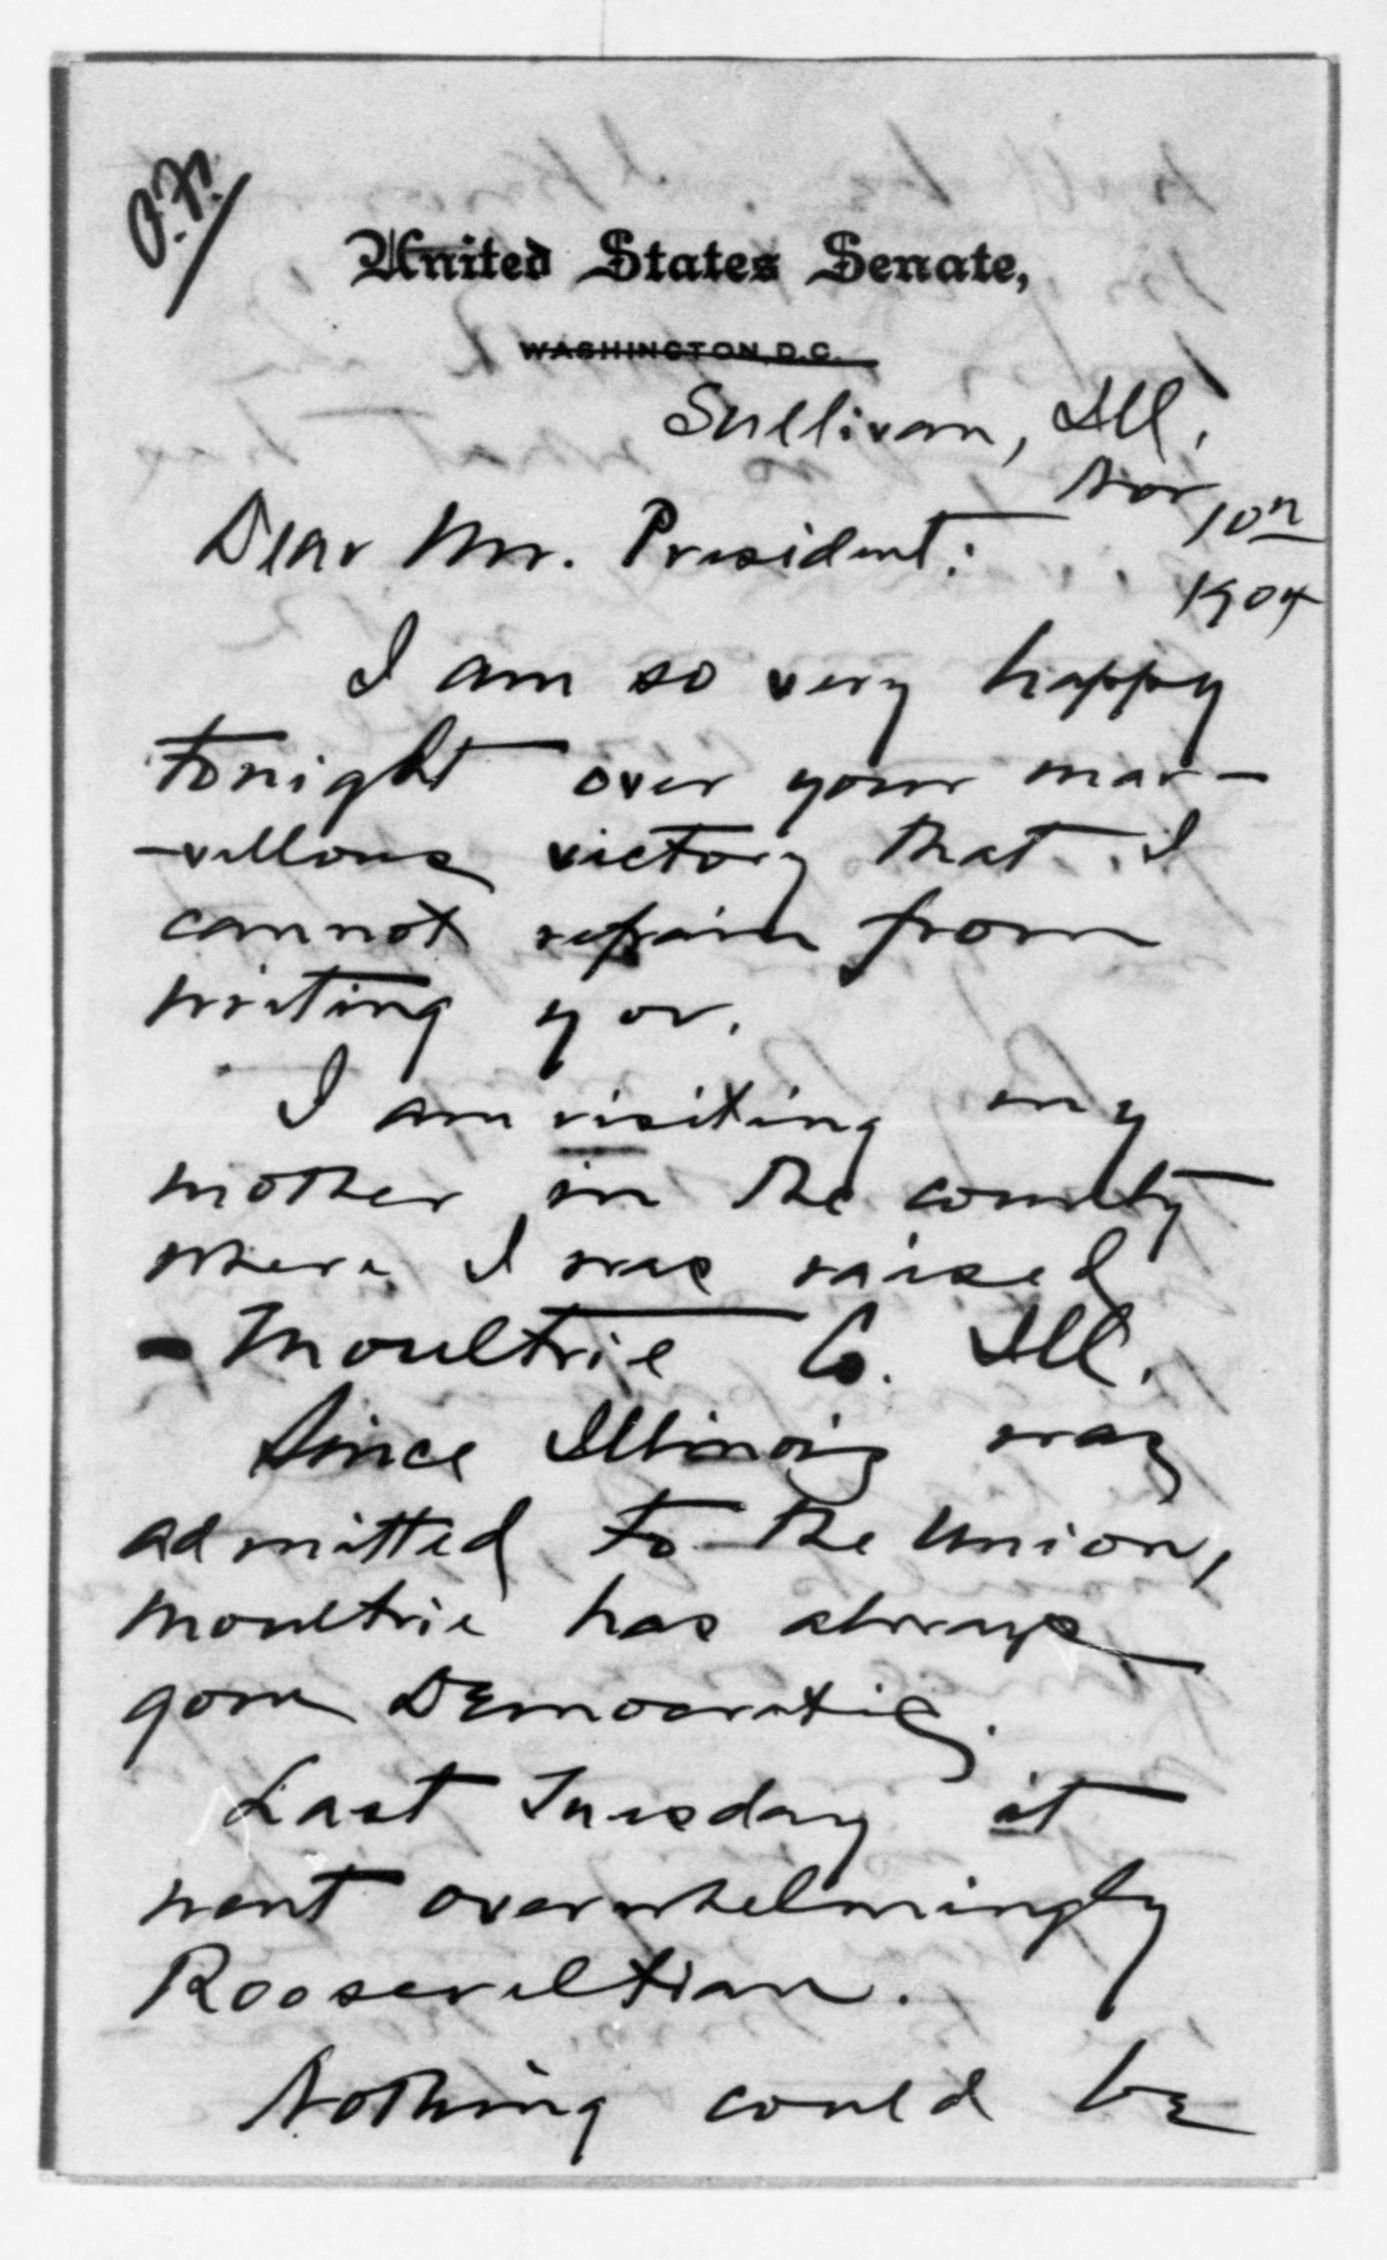 P.F.
United States Senate,
WASHINGTON, D.C.
Sullivan, Ill.
Nov 10th
1904
Dear Mr. President:
I am so very happy
tonight over your mar-
-vellous victory that I
cannot refrain from
writing you.
I am visiting my
mother in the county
where I was raised
- Moultrie Co. Ill.
Since Illinois was
admitted to the Union,
Moultrie has always
gone Democratic.
Last Tuesday it
went overwhelmingly
Rooseveltian.
Nothing could be